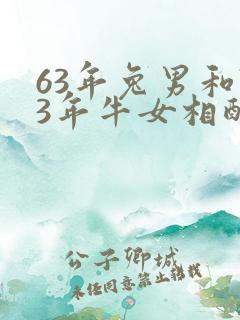 63年兔男和
3年牛女相配
公子卿城
未经同意禁止转载